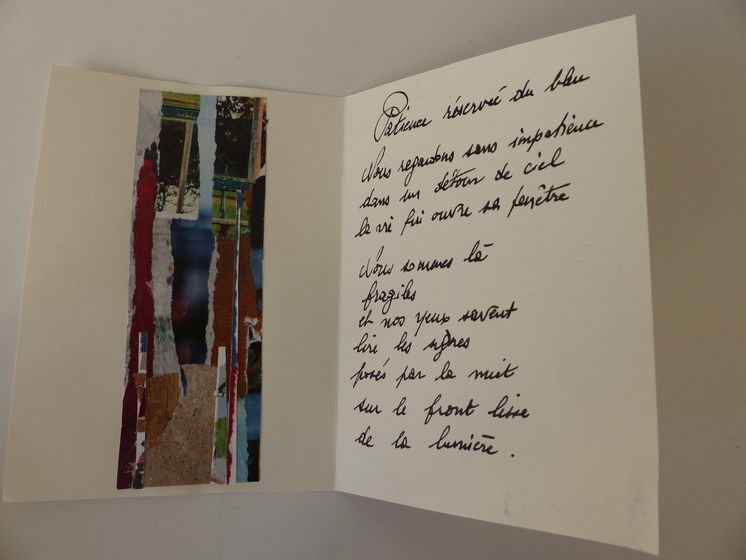 Patience réservée du bleu
Nous regardons sans impatience
dans un détour de ciel
la vie qui ouvre sa fenêtre
Nous sommes là
fragiles
et nos yeux savent
lire les signes
posés par la nuit
sur le front lisse
de la lumière.